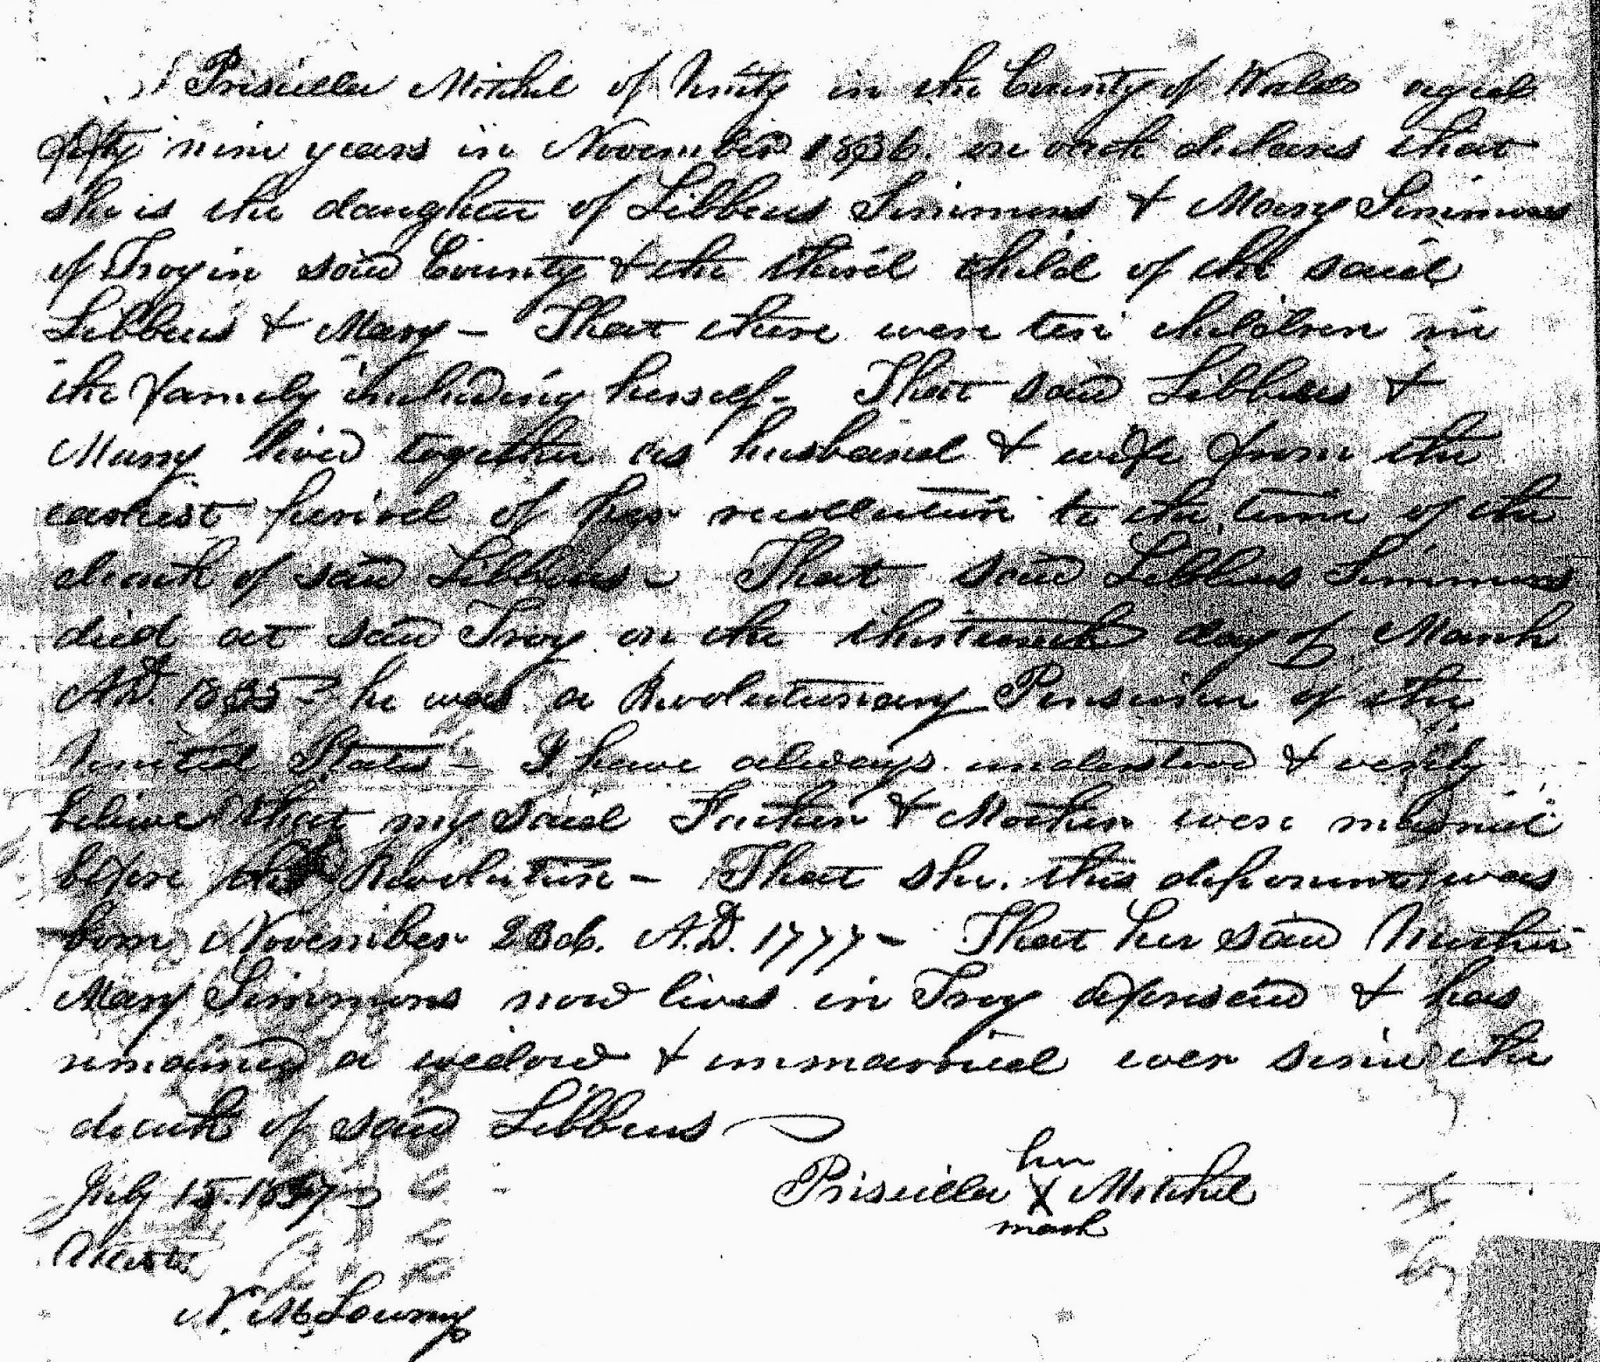 I Priscilla Mitchel of Unity in the County of Waldo aged
fifty nine years in November 1836. on oath declares that
she is the daughter of Libbeus Simmons & Mary Simmons
of Troy in said County & the third child of the said
Libbeus & Mary – That there were ten children in
the family including herself – That said Libbeus &
Mary lived together as husband & wife from the
earliest period of her recollection to the time of the
death of said Libbeus – That said Libbeus Simmons
died at said Troy on the thirteenth day of March
A.D. 1835 – he was a Revolutionary Pensioner of the
United States – I have always understood & verily
believe that my said Father & Mother were married
before the Revolution – That she this deponent was
born November 23d. A.D. 1777 – That her said Mother
Mary Simmons now lives in Troy aforesaid & has
remained a widow & unmarried ever since the
death of said Libbeus
July 15. 1837
her
Priscilla X Mitchel
mark
N. M. Lowney